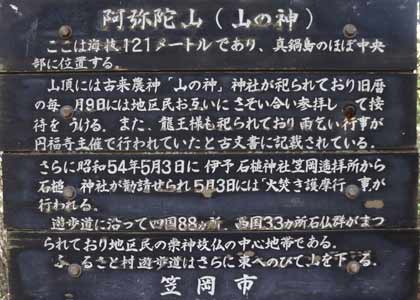 阿弥陀山(山の神)
ここは海抜121メートルであり、真鍋島のほぼ中央
部に位置する。
山頂には古来農神「山の神」神社が祀られており旧暦
の毎 月9日には地区民お互いにさそい合い参拝し て接
待を うける。また、龍王様も祀られており雨乞い行事が
円福寺主催で行われていたと古文書に記載されている。
さらに昭和54年5月3日に伊予石槌神社笠岡遙拝所から
石槌 神社が勧請せられ5月3日には「大焚き護摩行 事が
行われる。
遊歩道に沿って四国88ヵ所、西国33ヵ所石仏群がまつ
られており地区民の崇神故仏の中心地帯である。
ふ るさと村遊歩道はさらに東へのびて山を下 る。
笠岡市